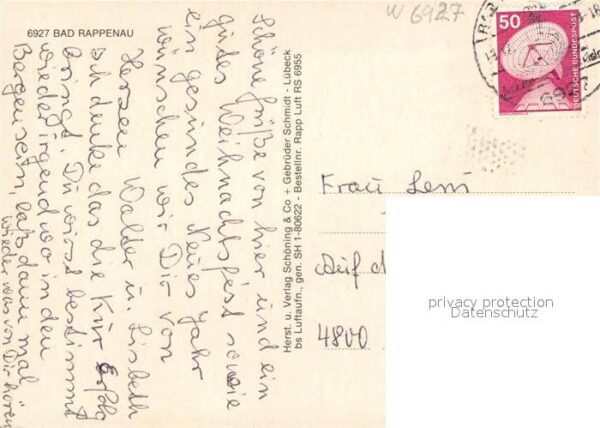 6927 BAD RAPPENAU
W 6927
50
DEUTSCHE BUNDESPOST
6927
Schöne Grüße von hier und ein
gutes Weihnachtsfest sowie
ein gesundes Neues Jahr
wünschen wir Dir von
Herzen Walter u. Lisbeth
Ich denke das die Kur Erfolg
bringt. Du wirst bestimmt
wieder irgendwo in den
Bergen sein, laß dann mal
wieder was von Dir hören
Herst. u. Verlag Schöning & Co + Gebrüder Schmidt - Lübeck
bs Luftaufn., gen. SH 1-80622 - Bestellnr. Rapp Luft RS 6955
Frau Leni
Auf d
4800
privacy protection
Datenschutz